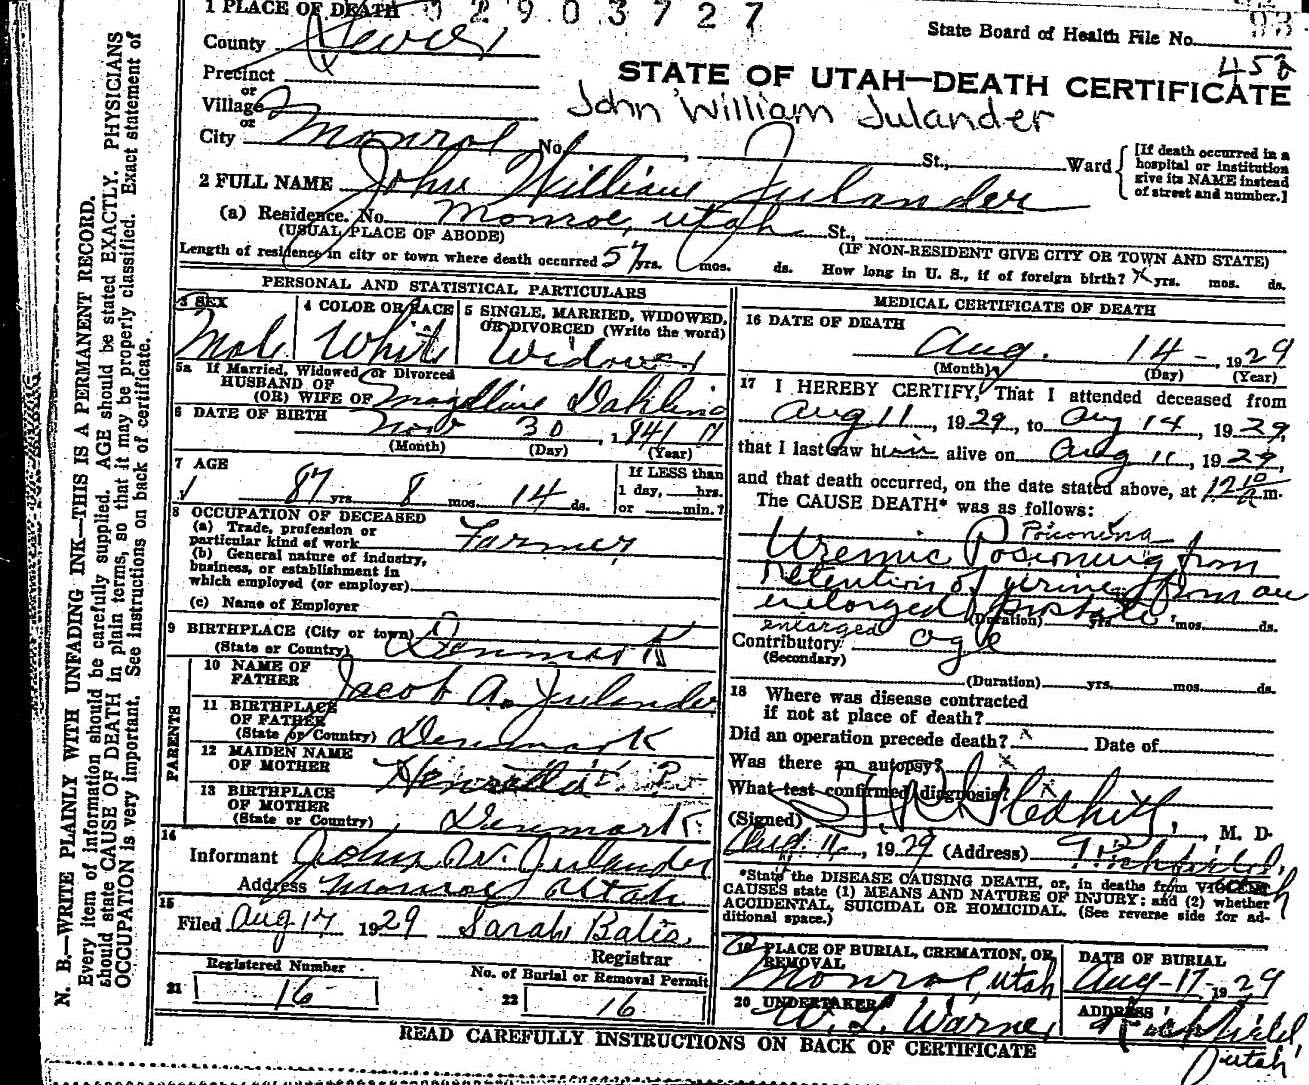 1 PLACE OF DEATH 02903727
State Board of Health File No.
County Sevier
452
Precinct
STATE OF UTAH—DEATH CERTIFICATE
or
Village
John William Julander
or
City Monroe No. St., Ward
[If death occurred in a hospital or institution give its NAME instead of street and number.]
2 FULL NAME John William Julander
(a) Residence. No. Monroe, Utah St.,
(USUAL PLACE OF ABODE) (IF NON-RESIDENT GIVE CITY OR TOWN AND STATE)
Length of residence in city or town where death occurred 57 yrs. mos. ds. How long in U. S., if of foreign birth? yrs. mos. ds.
PERSONAL AND STATISTICAL PARTICULARS
3 SEX
Male
4 COLOR OR RACE
White
5 SINGLE, MARRIED, WIDOWED, OR DIVORCED (Write the word)
Widower
5a If Married, Widowed or Divorced
HUSBAND OF
(OR) WIFE OF Dahlino
6 DATE OF BIRTH
Nov 30, 1841
(Month) (Day) (Year)
7 AGE
87 yrs. 8 mos. 14 ds.
If LESS than
1 day, hrs.
or min.?
8 OCCUPATION OF DECEASED
(a) Trade, profession or
particular kind of work Farmer
(b) General nature of industry,
business, or establishment in
which employed (or employer)
(c) Name of Employer
9 BIRTHPLACE (City or town)
(State or Country) Denmark
PARENTS
10 NAME OF
FATHER Jacob A. Julander
11 BIRTHPLACE
OF FATHER
(State or Country) Denmark
12 MAIDEN NAME
OF MOTHER Henrietta ?
13 BIRTHPLACE
OF MOTHER
(State or Country) Denmark.
14
Informant John W. Julander
Address Monroe Utah
15
Filed Aug 17 1929 Sarah Bates,
Registrar
21 Registered Number
16
22 No. of Burial or Removal Permit
16
MEDICAL CERTIFICATE OF DEATH
16 DATE OF DEATH
Aug. 14-, 1929
(Month) (Day) (Year)
17 I HEREBY CERTIFY, That I attended deceased from
Aug 11, 1929, to Aug 14, 1929,
that I last saw him alive on Aug 11, 1929,
and that death occurred, on the date stated above, at 12 10/a m.
The CAUSE DEATH* was as follows:
Poisoning
Uremic Posioning from
Retention of yirine from an
enlorged prostate
(Duration) yrs. mos. ds.
enlarged
Contributory age
(Secondary)
(Duration) yrs. mos. ds.
18 Where was disease contracted
if not at place of death?
Did an operation precede death? x Date of
Was there an autopsy? x
What test confirmed diagnosis? x
(Signed) , M. D.
Aug. , 1929 (Address) Richfield,
*State the DISEASE CAUSING DEATH, or, in deaths from VIOLENT
CAUSES state (1) MEANS AND NATURE OF INJURY; and (2) whether
ACCIDENTAL, SUICIDAL OR HOMICIDAL. (See reverse side for ad-
ditional space.)
19 PLACE OF BURIAL, CREMATION, OR
REMOVAL
Monroe, Utah
DATE OF BURIAL
Aug-17 1929
20 UNDERTAKER
W. L. Warner
ADDRESS
Richfield,
Utah
READ CAREFULLY INSTRUCTIONS ON BACK OF CERTIFICATE
N. B.—WRITE PLAINLY WITH UNFADING INK—THIS IS A PERMANENT RECORD.
Every item of information should be carefully supplied. AGE should be stated EXACTLY. PHYSICIANS
should state CAUSE OF DEATH in plain terms, so that it may be properly classified. Exact statement of
OCCUPATION is very important. See instructions on back of certificate.